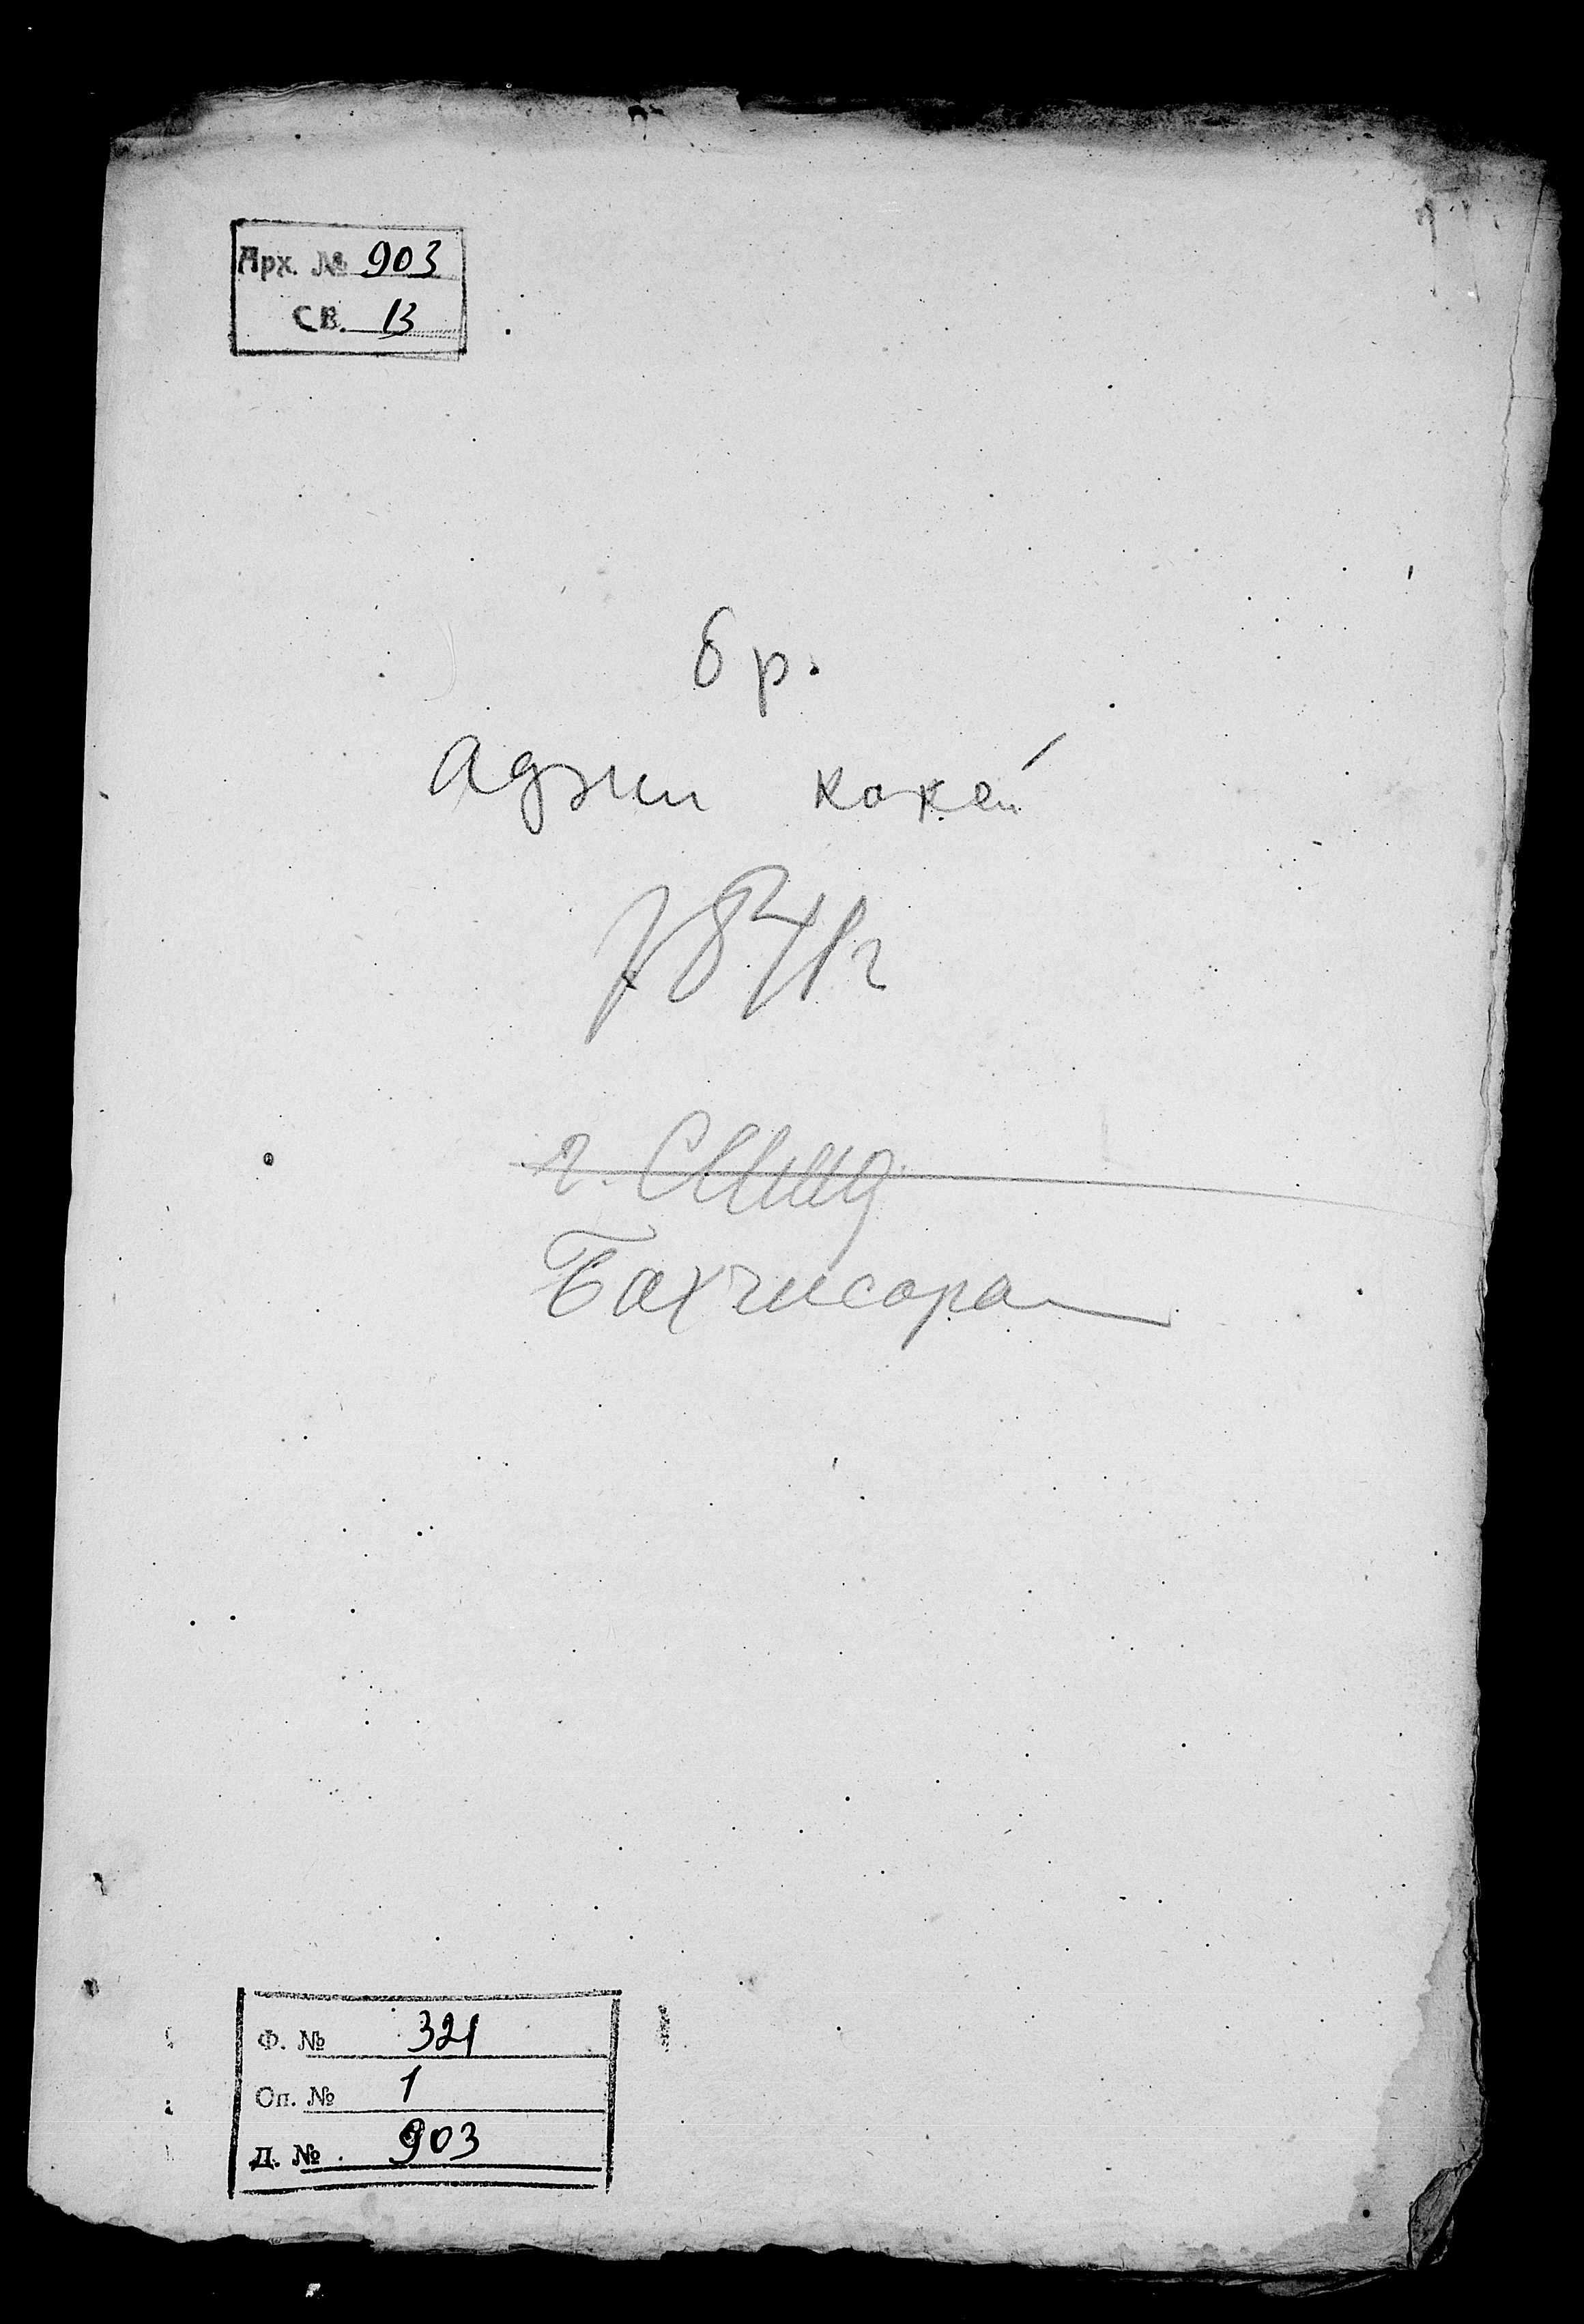 Арх. № 903
СВ. 13
бр.
Аджи кокей
1841г
г.
Бахчисара
Ф. № 321
Оп. № 1
Д. № 903